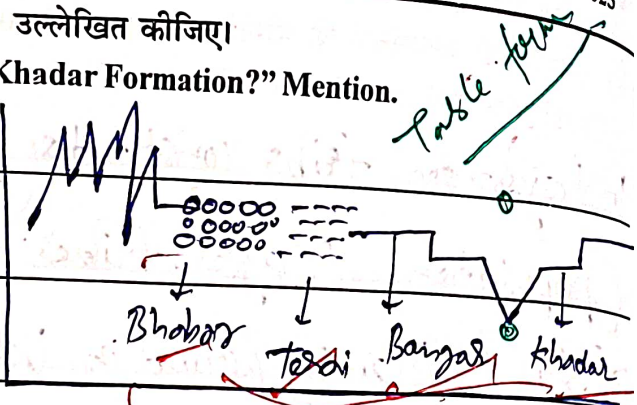 उल्लेखित कीजिए।
Khadar Formation?” Mention.
Table form
Bhabar
Terai
Bangar
Khadar